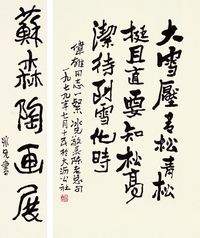 大雪壓青松青松
挺且直要知松高
潔待到雪化時
偉雄同志一笑 冰兄敬录陈老总句
一九七九年七月十日於大沥公社
蘇森陶画展
冰兄書